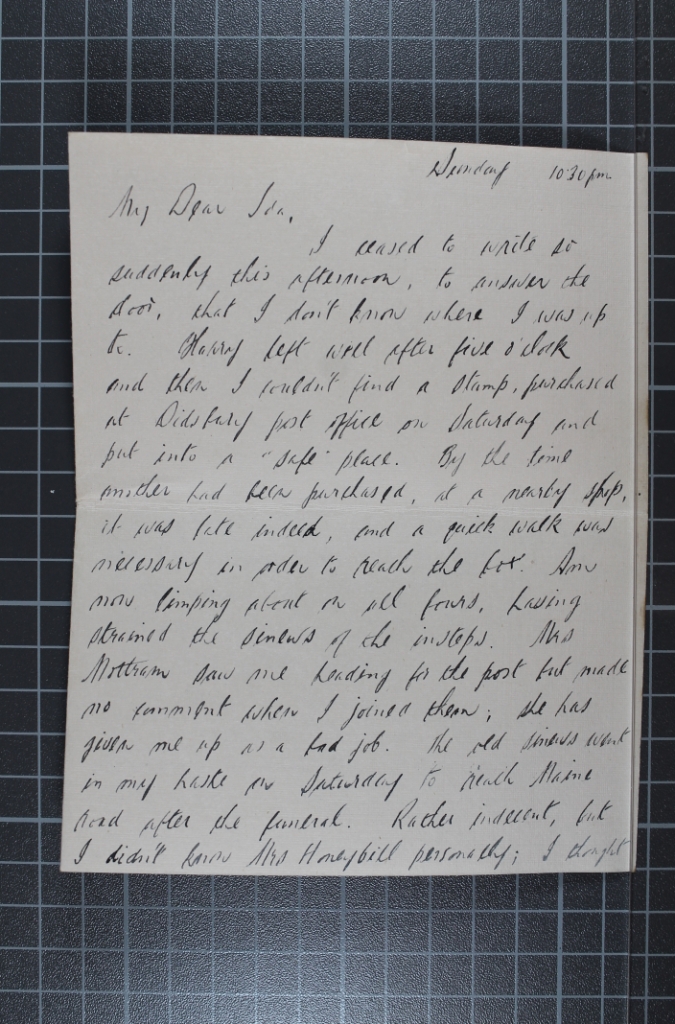 Sunday 10.30pm
My Dear Ida,
I ceased to write so
suddenly this afternoon, to answer the
door, that I don't know where I was up
to. Harry left well after five o'clock
and then I couldn't find a stamp, purchased
at Didsbury post office on Saturday and
put into a "safe" place. By the time
another had been purchased, at a nearby shop,
it was late indeed, and a quick walk was
necessary in order to reach the box. Am
now limping about on all fours, having
strained the sinews of the insteps. Mrs
Mottram saw me heading for the post but made
no comment when I joined them; she has
given me up as a bad job. The old sinews went
in my haste on Saturday to reach Maine
road after the funeral. Rather indecent, but
I didn't know Mrs Honeybill personally; I thought